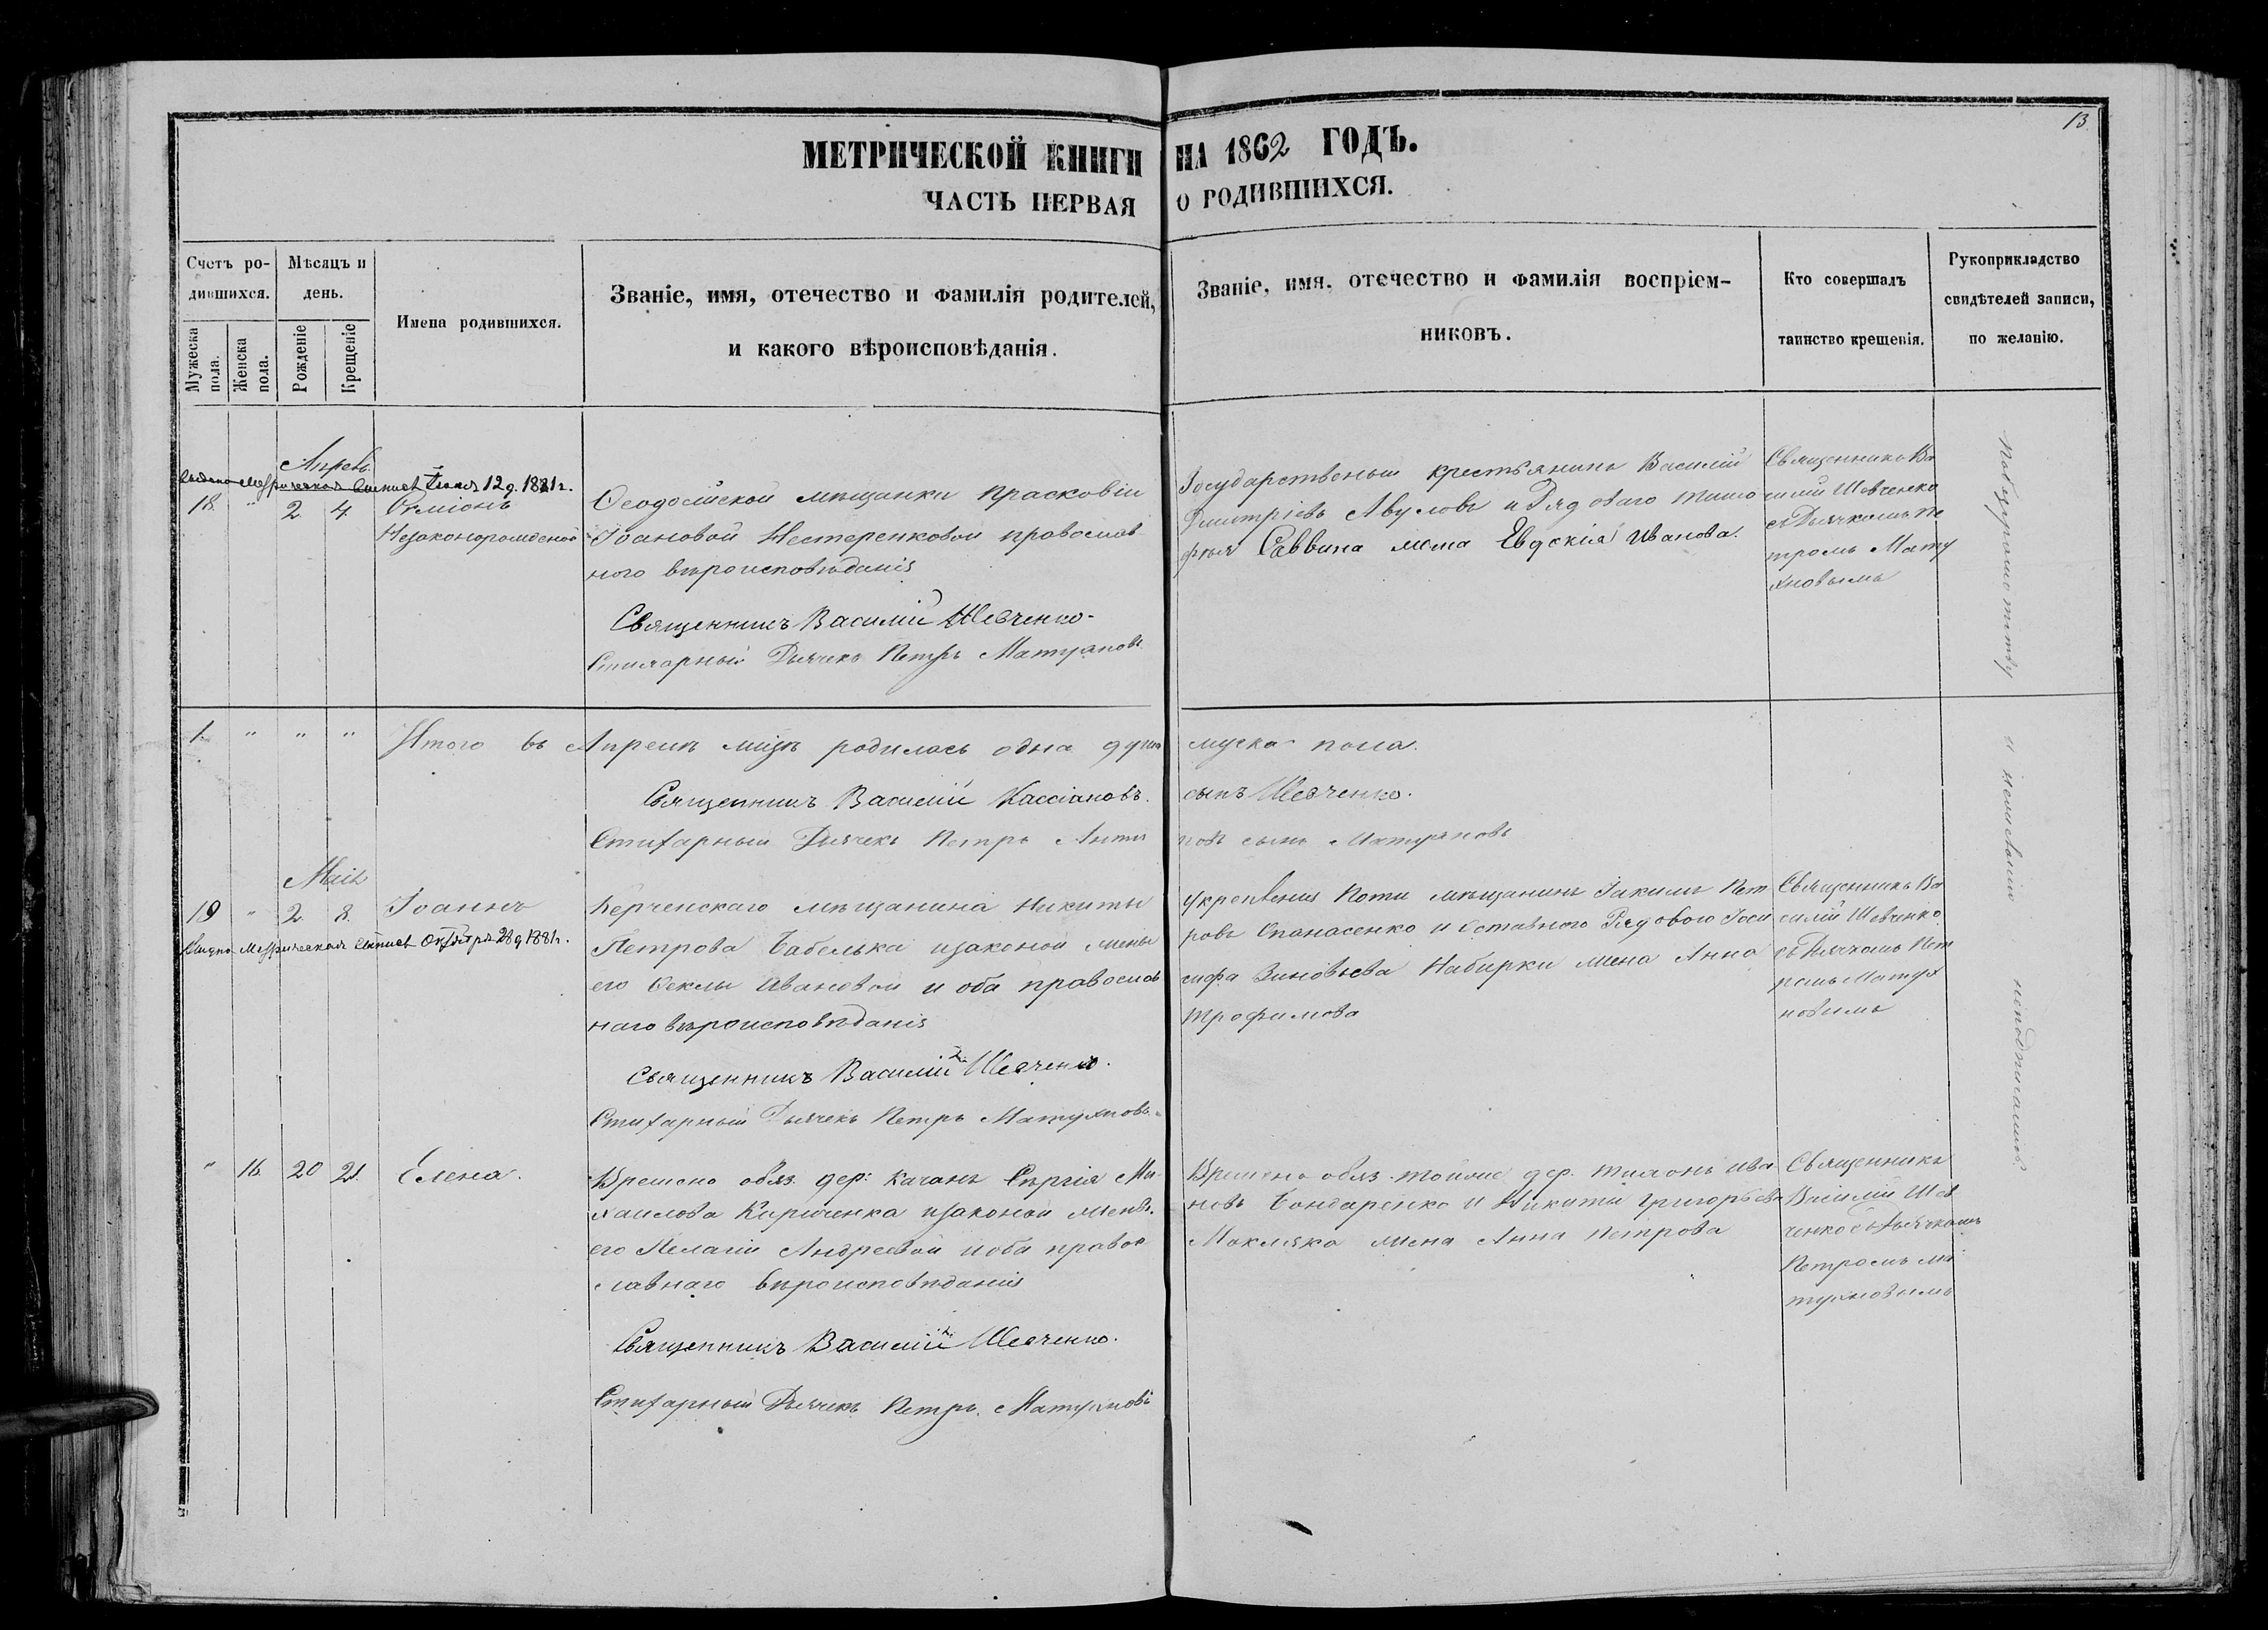 13.
МЕТРИЧЕСКОЙ КНИГИ НА 1862 ГОДЪ.
ЧАСТЬ ПЕРВАЯ О РОДИВШИХСЯ.
Счетъ ро-
дившихся.
Мужеска
пола.
Женска
пола.
Мѣсяцъ и
день.
Рожденіе
Крещеніе
Имена родившихся.
Званіе, имя, отечество и фамилія родителей,
и какого вѣроисповѣданія.
Званіе, имя, отечество и фамилія воспріем-
никовъ.
Кто совершалъ
таинство крещенія.
Рукоприкладство
свидѣтелей записи,
по желанію.
Апрель
12 д. 1881 г.
18 " 2 4
Незаконорожденой
Ѳеодосійской мѣщанки Прасковіи
Іоановой Нестеренковой православ
ного вѣроисповѣданія
Священникъ Василій Шевченко.
Стихарный Дьячекъ Петръ Матухновъ
Государственый крестьянинъ Василій
Дмитріевъ Авуловъ и Рядоваго Тимо
фея Саввина жена Евдокія Иванова.
Священникъ Ва
силій Шевченко
съ Дьячкомъ Пе
тромъ Мату
хновымъ
1. " " " Итого въ Апрелѣ мцѣ родилась одна душа муска пола.
Священникъ Василій Кассіановъ сынъ Шевченко.
Стихарный Дьячекъ Петръ Анти повъ сынъ Матухновъ
Май
19 " 2 8. Іоаннъ
Выдана Метрическая выпись Октября 28 д 1881 г.
Керченскаго мѣщанина Никиты
Петрова Бабелька изаконой жены
его Ѳеклы Ивановой и оба православ
наго вѣроисповѣданія
Священникъ Василій Шевченко.
Стихарный Дьячекъ Петръ Матухновъ.
Укрепленія Поти мѣщанинъ Іакимъ Пет
ровъ Опанасенко и Оставного Рядового Іоси
сифа Зиновьева Набирки жена Анна
Трофимова
Священникъ Ва
силій Шевченко
съ Дьячкомъ Пет
ромъ Матух
новимъ
" 16. 20 21. Елена.
Времено обяз. дер: Качанъ Сергія Ми
хаилова Кириченка изаконой жены.
его Пелагіи Андреевой и оба право
славнаго вѣроисповѣданія
Священникъ Василій Шевченко.
Стихарный Дьячекъ Петръ Матухновъ
Времено обяз. тойже дер. Тихонъ Ива
новъ Бондаренко и Никиты Григорьева
Мокляка жена Анна Петрова
Священникъ
Василій Шев
ченко съ Дьячкомъ
Петромъ Ма
тухновымъ